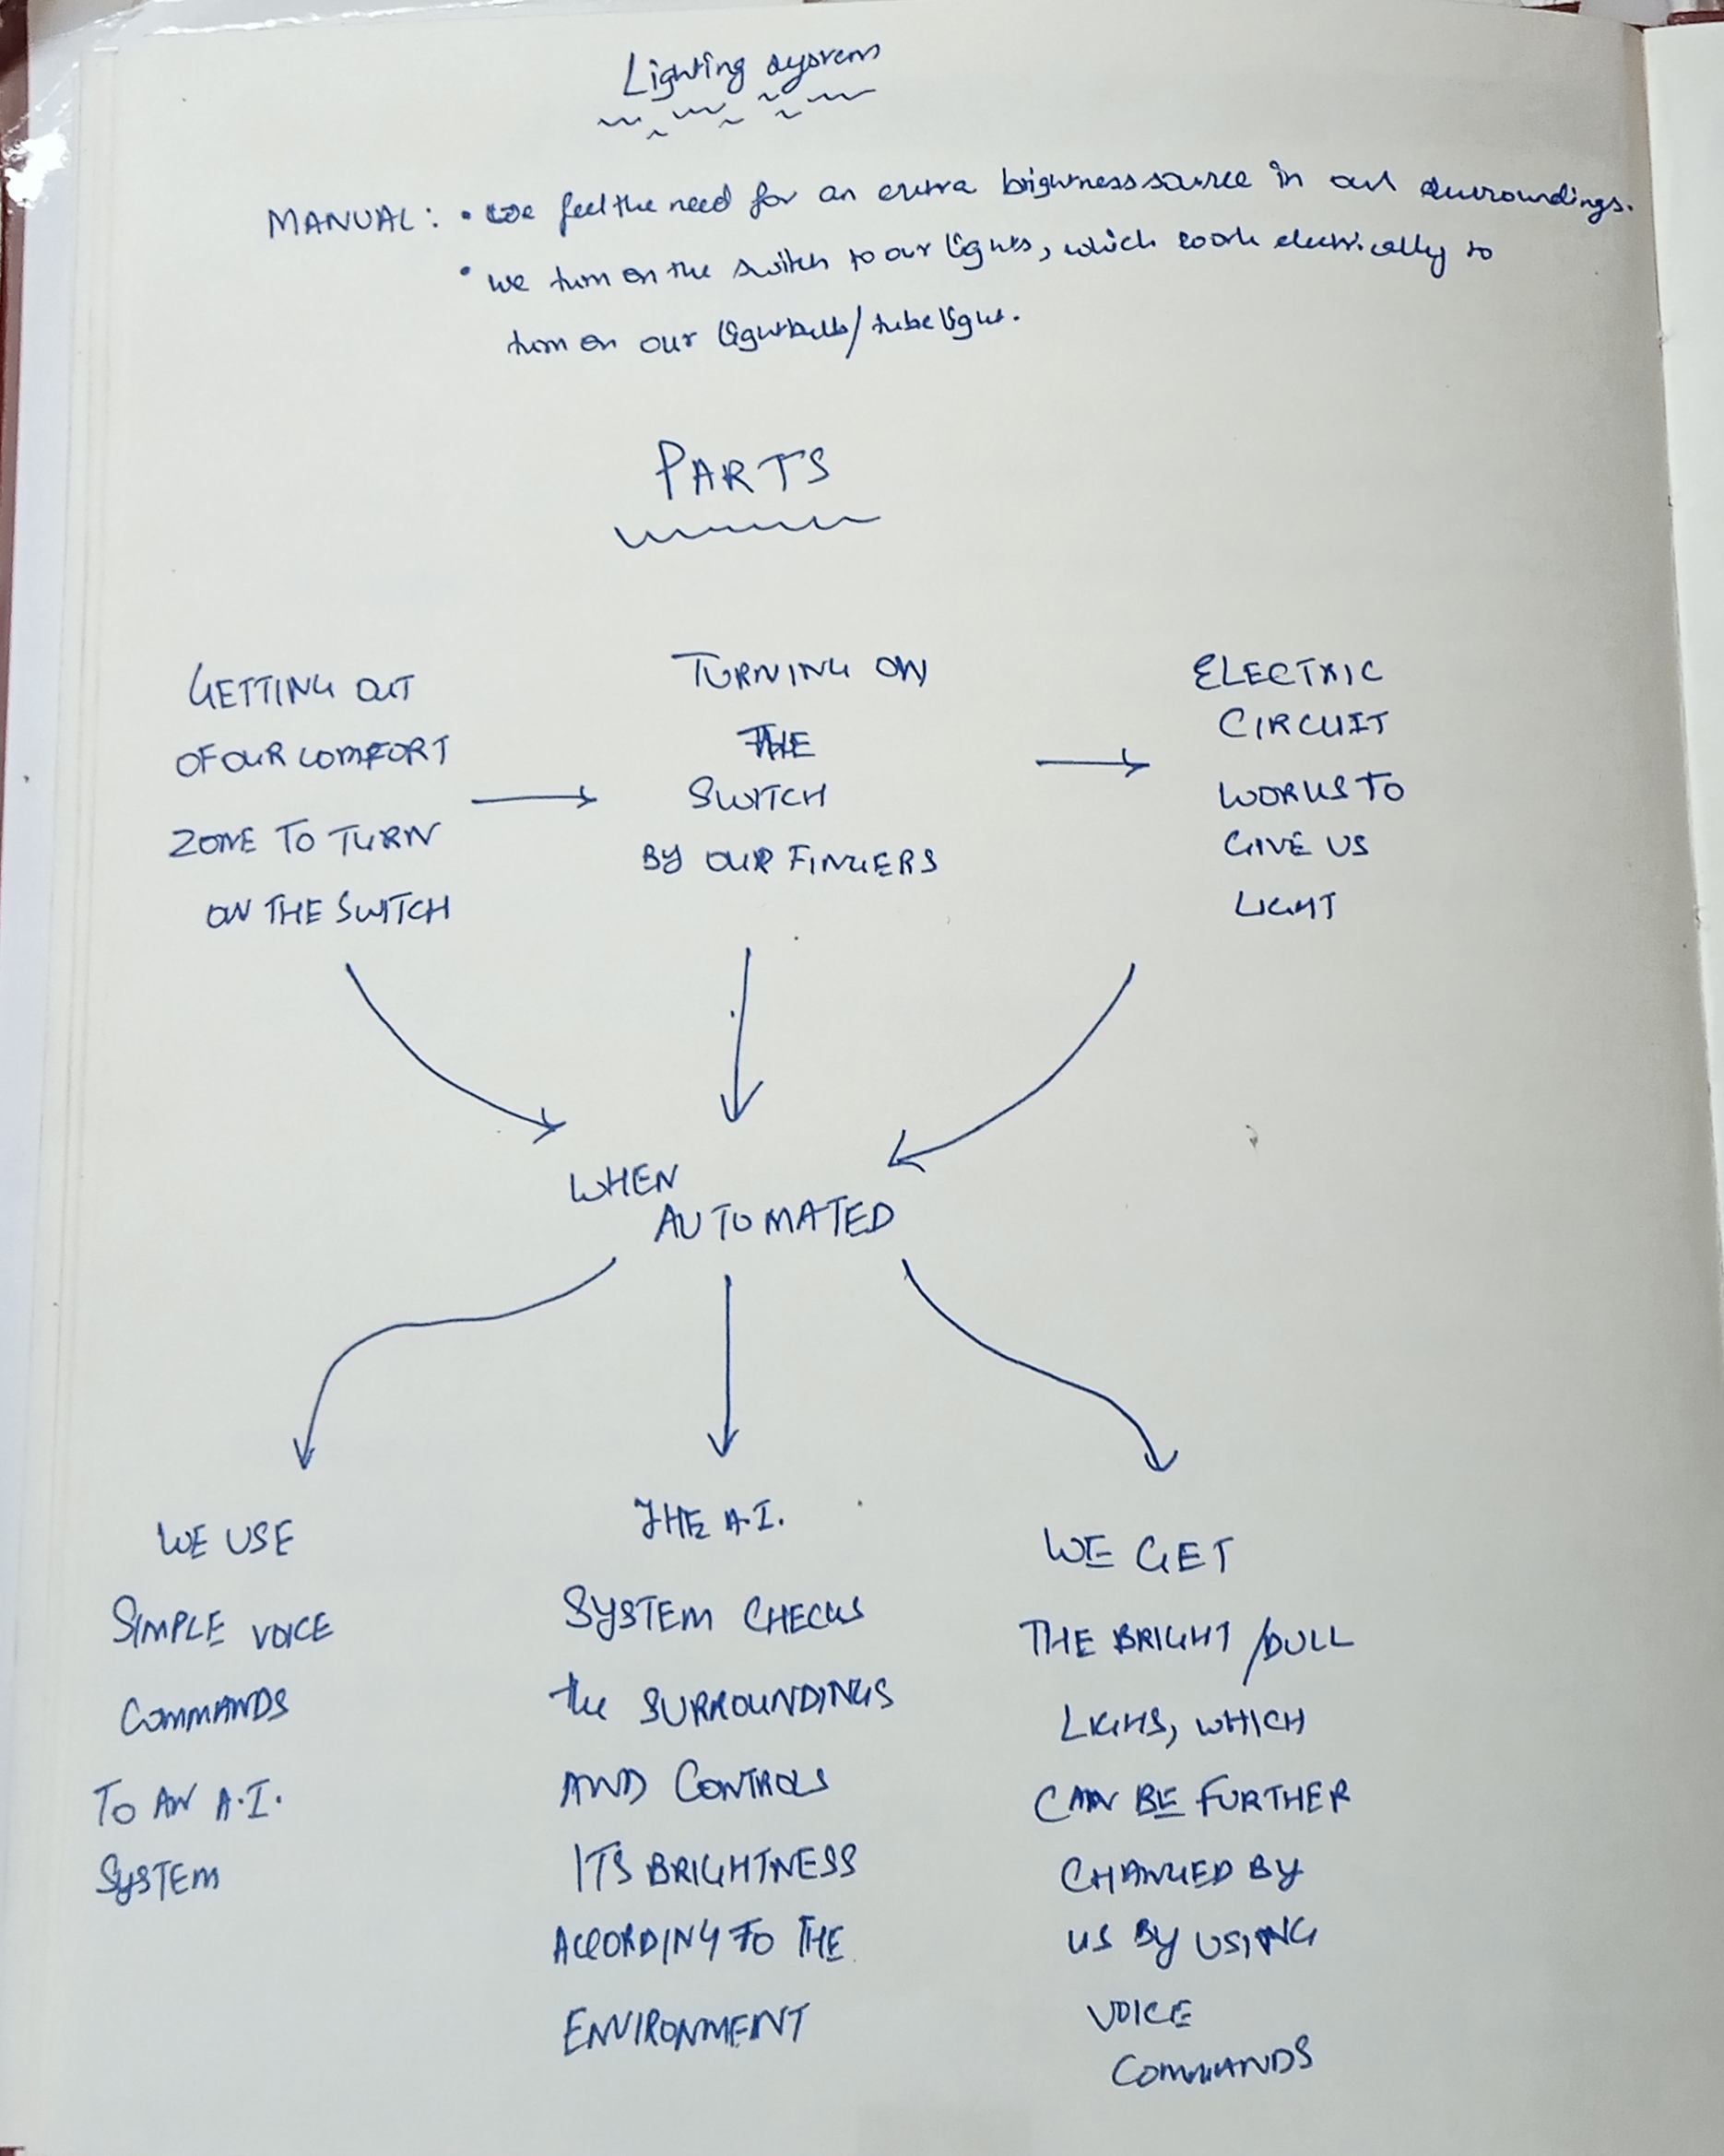 Lighting system
MANUAL: • we feel the need for an extra brightness source in our surroundings.
• we turn on the switch to our lights, which work electrically to
turn on our lightbulb/tubelight.
PARTS
GETTING OUT
OF OUR COMFORT
ZONE TO TURN
ON THE SWITCH
TURNING ON
THE
SWITCH
BY OUR FINGERS
ELECTRIC
CIRCUIT
WORKS TO
GIVE US
LIGHT
WHEN
AUTOMATED
WE USE
SIMPLE VOICE
COMMANDS
TO AN A.I.
SYSTEM
THE A.I.
SYSTEM CHECKS
the SURROUNDINGS
AND CONTROLS
ITS BRIGHTNESS
ACCORDING TO THE
ENVIRONMENT
WE GET
THE BRIGHT/DULL
LIGHS, WHICH
CAN BE FURTHER
CHANGED BY
US BY USING
VOICE
COMMANDS